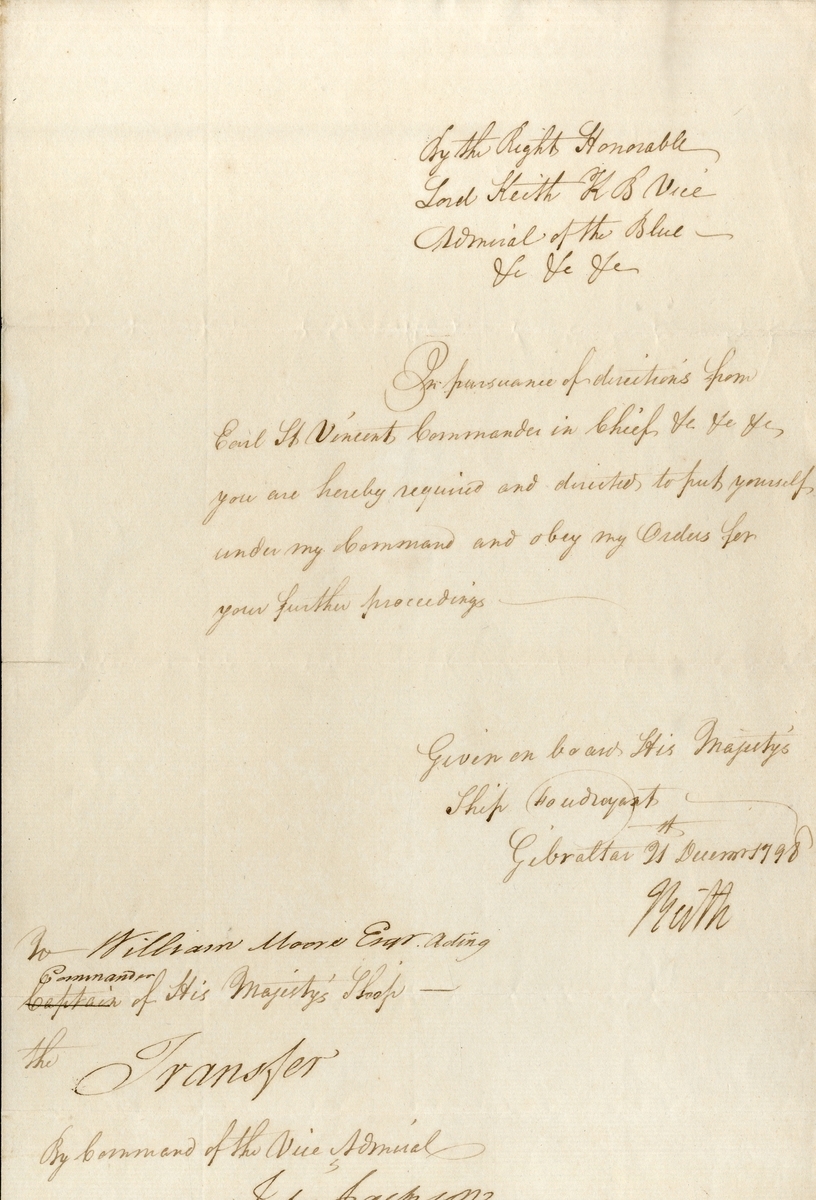 By the Right Honorable
Lord Keith K B Vice
Admiral of the Blue
&c &c &c
In pursuance of direction's from
Earl St Vincent Commander in Chief &c &c &c
you are hereby required and directed to put yourself
under my Command and obey my Orders for
your further proceedings
Given on board His Majesty's
Ship Foudroyant
Gibraltar 21th Decemr 1798
Keith
To William Moore Esqr. Acting
Commander
Captain of His Majesty's Sloop
the Transfer
By Command of the Vice Admiral
Jackson